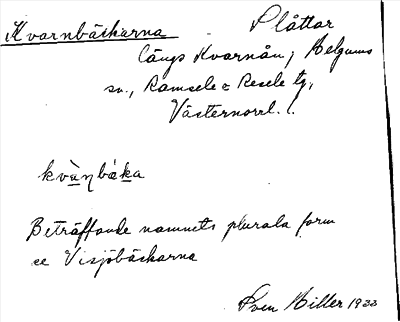 Kvarnbäckarna Slåttar
längs Kvarnån, Helgums
sn., Ramsele & Resele tg,
Västernorrl. l.
kvàṇbáka
Beträffande namnets plurala form
se Visjöbäckarna
Sven Hiller 1933